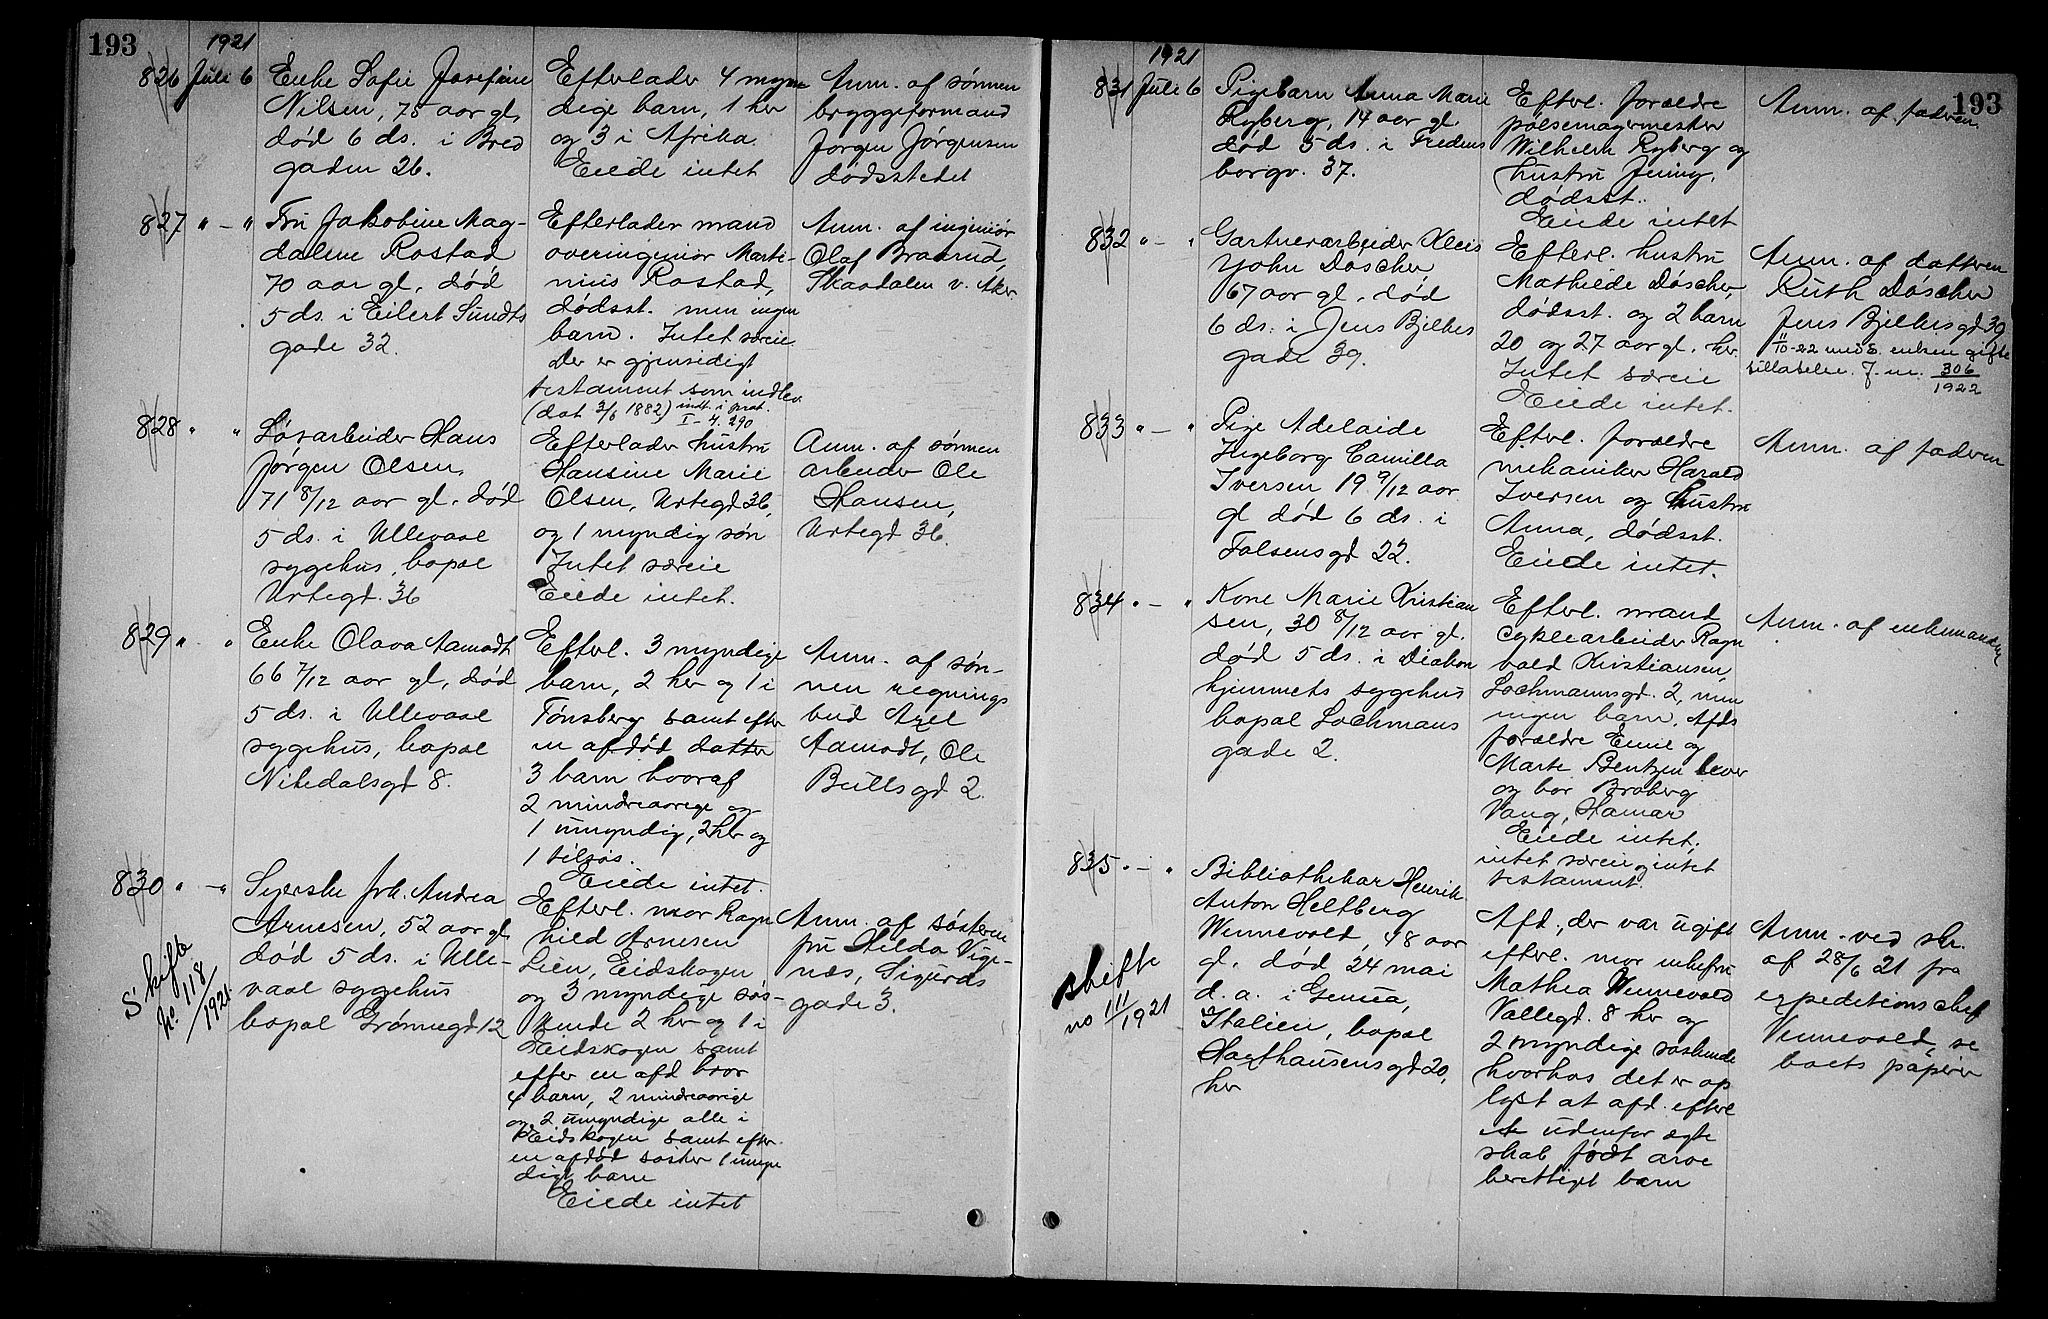 193
1921
826 Juli 6
Enke Sofie Josefine
Nilsen, 75 aar gl,
død 6 ds. i Bred
gaden 26.
Efterlader 4 myn
dige barn, 1 her
og 3 i Afrika.
Eiede intet
Anm. af sønnen
bryggeformand
Jørgen Jørgensen
dødsstedet
827 " — "
Fru Jakobine Mag-
dalene Rostad
70 aar gl, død
5 ds. i Eilert Sundts
gade 32.
Efterlader mand
overingeniør Marti-
nius Rostad,
dødsst. men ingen
barn. Intet særeie
Der er gjensidigt
testament som indlev
(dat 3/6 1882) indt. i prot.
I - 4. 290
Anm. af ingeniør
Olaf Braarud,
Skaadalen v. Aker
828 " "
Løsarbeider Hans
Jørgen Olsen,
71 8/12 aar gl. død
5 ds. i Ullevaal
sygehus, bopæl
Urtegd. 36
Efterlader hustru
Hansine Marie
Olsen, Urtegd 36,
og 1 myndig søn
Intet særeie
Eiede intet.
Anm. af sønnen
arbeider Ole
Hansen,
Urtegd 36.
829 " "
Enke Olava Aamodt
66 7/12 aar gl, død
5 ds. i Ullevaal
sygehus, bopæl
Nitedalsgd 8.
Efterl. 3 myndige
barn, 2 her og 1 i
Tønsberg samt efter
en afdød datter
3 barn hvoraf
2 mindreaarige og
1 umyndig, 2 her og
1 tilsjøs.
Eiede intet.
Anm. af søn-
nen regnings
bud Axel
Aamodt, Ole
Bullsgd 2.
830 " — "
Skifte
No. 118/1921
Syerske frk. Andrea
Arnesen, 52 aar gl,
død 5 ds. i Ulle-
vaal sygehus
bopæl Grønnegd 12
Efterl. mor Ragn
hild Arnesen
Lien, Eidskogen
og 3 myndige søs-
kende 2 her og 1 i
Eidskogen samt
efter en afd bror
4 barn, 2 mindreaarige
og 2 umyndige alle i
Eidskogen samt efter
en afdød søster 1 umyn
digt barn
Eiede intet
Anm. af søsteren
fru Hilda Vige-
næs, Sigurds
gade 3.
193
1921
831 Juli 6
Pigebarn Anna Marie
Ryberg, 14 aar gl
død 5 ds. i Fredens
borgv. 37.
Efterl. forældre
pølsemagermester
Wilhelm Ryberg og
hustru Jenny,
dødsst.
Eiede intet
Anm. af faderen
832 " — "
Gartnerarbeider Kleis
John Døscher
67 aar gl. død
6 ds. i Jens Bjelkes
gade 39.
Efterl. hustru
Mathilde Døscher,
dødsst. og 2 barn
20 og 27 aar gl. her.
Intet særeie
Eiede intet.
Anm. af datteren
Ruth Døscher
Jens Bjelkesgd 39
11/10-22 meds. enken gifte
tilladelse. J. nr. 306/1922
833 " — "
Pige Adelaide
Ingeborg Camilla
Iversen 19 9/12 aar
gl død 6 ds. i
Falsensgd 22.
Efterl. forældre
mekaniker Harald
Iversen og hustru
Anna, dødsst.
Eiede intet.
Anm. af faderen
834 " — "
Kone Marie Kristian
sen, 30 8/12 aar gl.
død 5 ds. i Diakon
hjemmets sygehus
bopæl Lochmans
gade 2.
Efterl. mand
cyklearbeider Ragn
vald Kristiansen,
Lochmannsgd. 2, men
ingen barn. Afds
forældre Emil og
Marte Bentzen lever
og bor Broberg
Vang, Hamar
Eiede intet,
intet særeie og intet
testament.
Anm. af enkemanden
835 " — "
skifte
no 11/1921
Bibliothekar Henrik
Anton Heltberg
Wennevold, 48 aar
gl. død 24 mai
d. a. i Genua,
Italien, bopæl
Haxthausensgd 20,
her
Afd., der var ugift
efterl. mor enkefru
Mathea Wennevold
Vallegd. 8 her og
2 myndige søskende
hvorhos det er op
lyst at afd. efterl
et udenfor ægte
skab født arve
berettiget barn
Anm. ved skr.
af 28/6 21 fra
expeditionschef
Vennevold, se
boets papirer